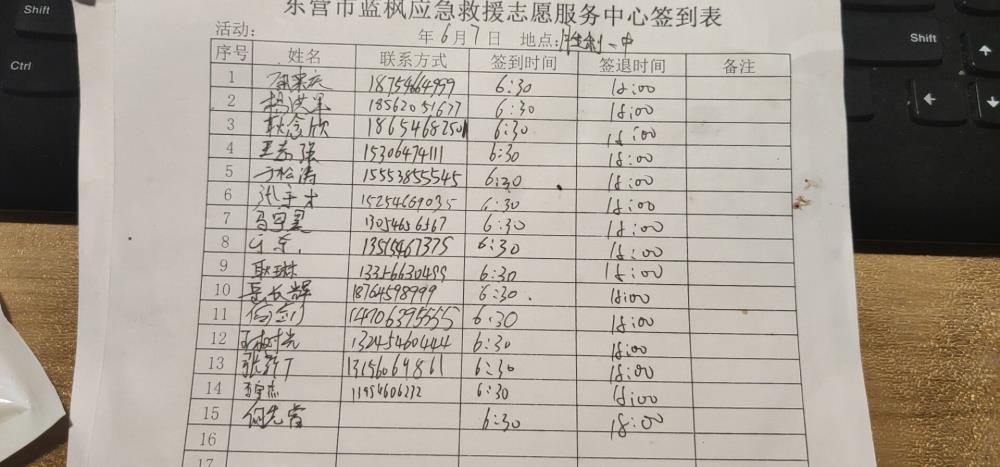 东营市蓝枫应急救援志愿服务中心签到表
活动: 年 6月 7日 地点: 胜利一中
序号 姓名 联系方式 签到时间 签退时间 备注
1 18754664999 6:30 18:00
2 18562051677 6:30 18:00
3 耿念欣 18654682501 6:30 18:00
4 王志强 15306474111 6:30 18:00
5 于松涛 15553855545 6:30 18:00
6 张守才 15254669035 6:30 18:00
7 6:30 18:00
8 13515467375 6:30 18:00
9 耿琳 6:30 18:00
10 岳长辉 18764598999 6:30 18:00
11 14706395555 6:30 18:00
12 13245460444 6:30 18:00
13 13156069861 6:30 18:00
14 6:30 18:00
15 何先富 6:30 18:00
16
17
Shift
Ctrl
Shift